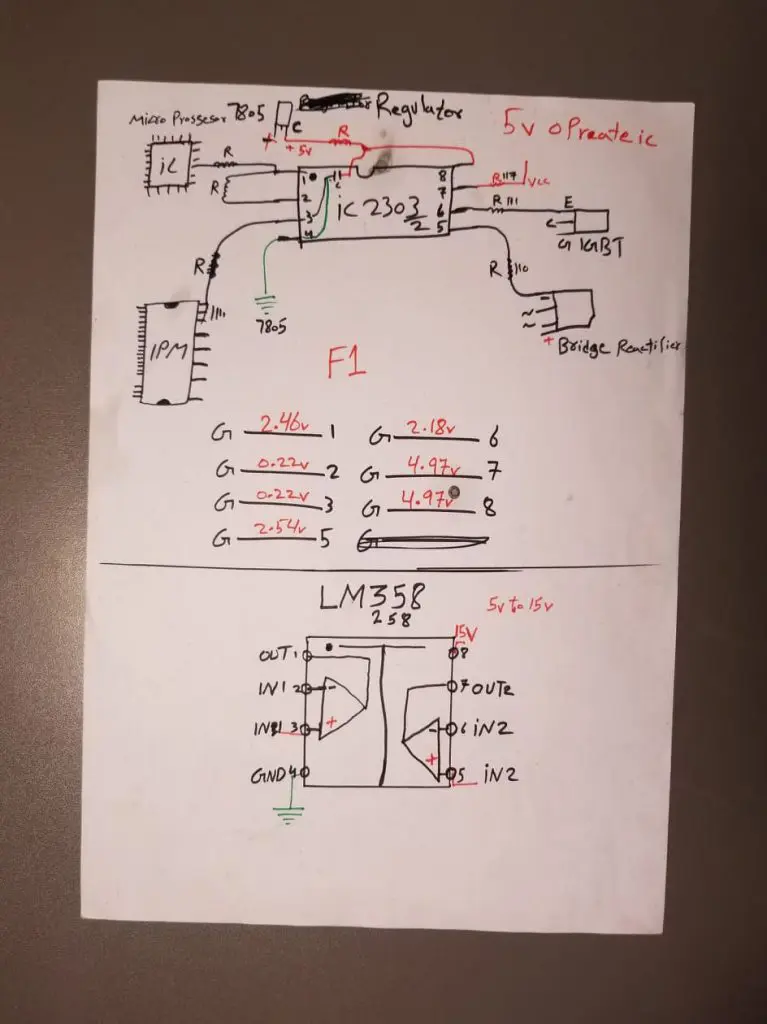 Micro Prossesor 7805 Regulator
5v oPraateic
C
R
+5v
iC
R
R
1
2
3
4
8
7
6
5
C
iC 2303
2
R 117 Vcc
R 111 E
C
G IGBT
R
R 110
7805
IPM
~
~
+ Bridge Reactifier
F1
G 2.46v 1
G 2.18v 6
G 0.22v 2
G 4.97v 7
G 0.22v 3
G 4.97v 8
G 2.54v 5
LM358
258
5v to 15v
15V
OUT 1
8
IN1 2 -
7 OUT2
IN1 3 +
- 6 iN2
GND 4
+ 5 iN2